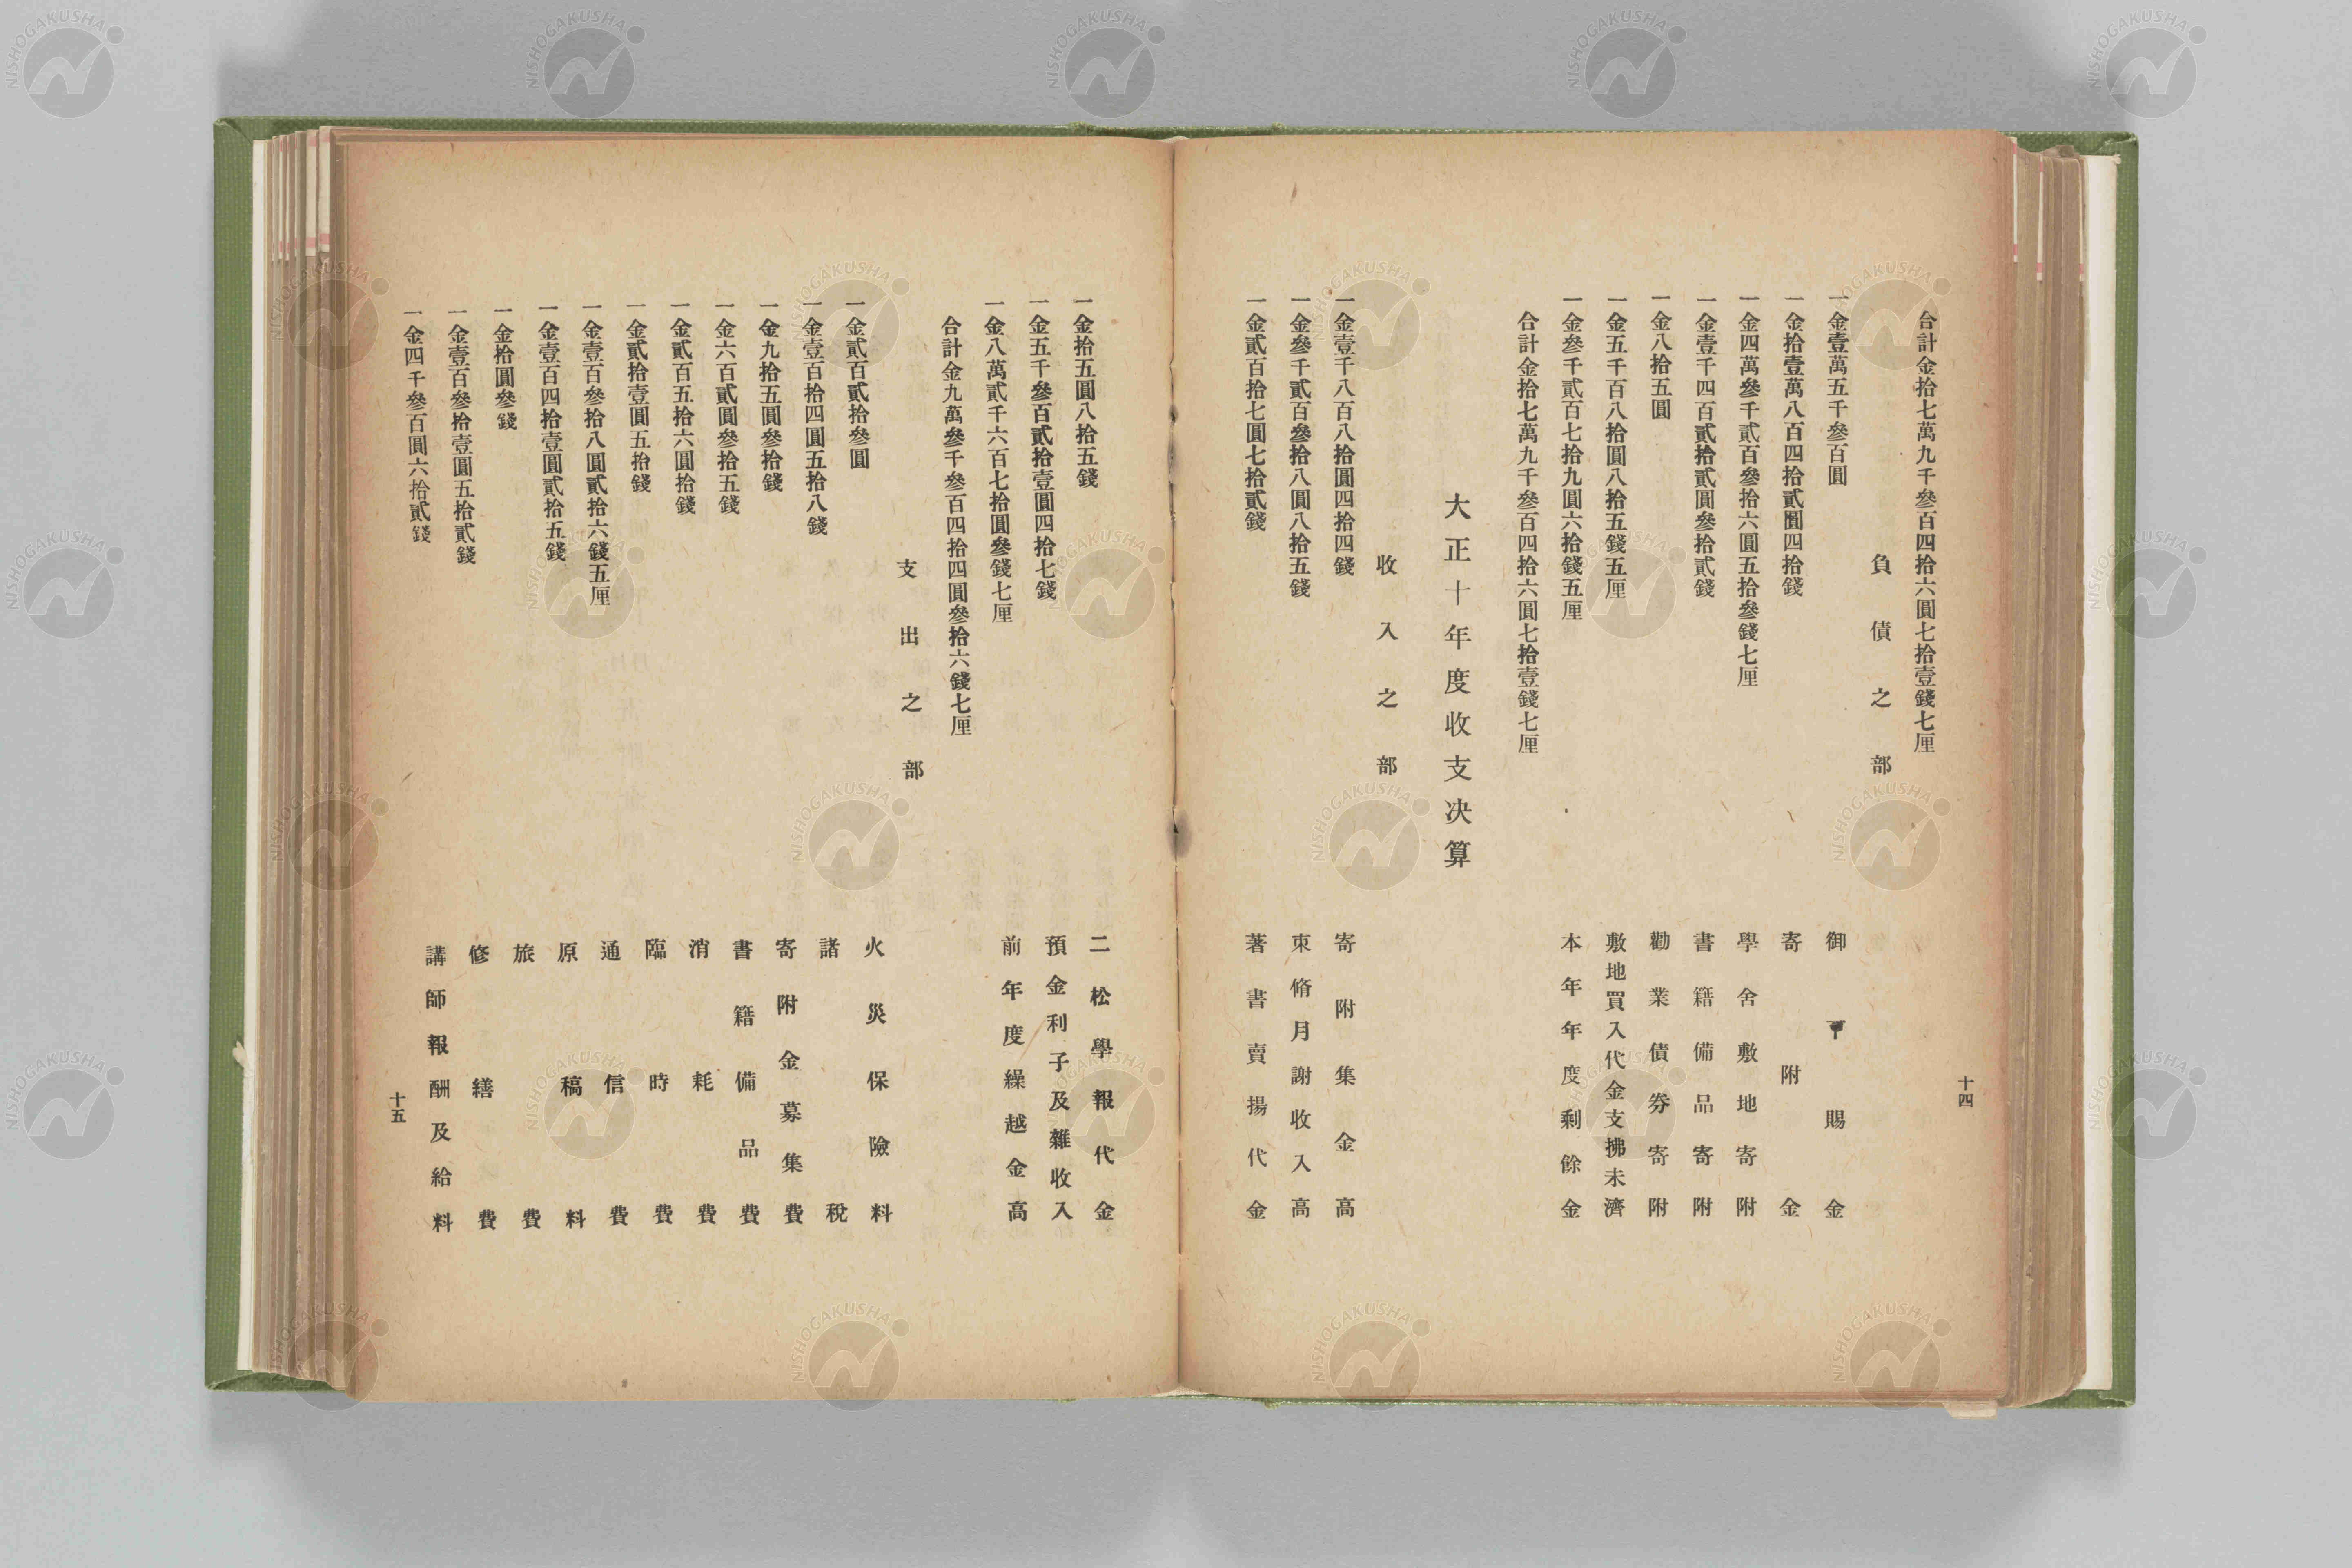 合計金拾七萬九千參百四拾六圓七拾壹錢七厘
負債之部
一金壹萬五千參百圓 御下賜金
一金拾壹萬八百四拾貳圓四拾錢 寄附金
一金四萬參千貳百參拾六圓五拾參錢七厘 學舍敷地寄附
一金壹千四百貳拾貳圓參拾貳錢 書籍備品寄附
一金八拾五圓 勸業債券寄附
一金五千百八拾圓八拾五錢五厘 敷地買入代金支拂未濟
一金參千貳百七拾九圓六拾錢五厘 本年年度剩餘金
合計金拾七萬九千參百四拾六圓七拾壹錢七厘
大正十年度收支決算
收入之部
一金壹千八百八拾圓四拾四錢 寄附集金高
一金參千貳百參拾八圓八拾五錢 束脩月謝收入高
一金貳百拾七圓七拾貳錢 著書賣揚代金
十四
一金拾五圓八拾五錢 二松學報代金
一金五千參百貳拾壹圓四拾七錢 預金利子及雜收入
一金八萬貳千六百七拾圓參錢七厘 前年度繰越金高
合計金九萬參千參百四拾四圓參拾六錢七厘
支出之部
一金貳百貳拾參圓 火災保險料
一金壹百拾四圓五拾八錢 諸稅
一金九拾五圓參拾錢 寄附金募集費
一金六百貳圓參拾五錢 書籍備品費
一金貳百五拾六圓拾錢 消耗費
一金貳拾壹圓五拾錢 臨時費
一金壹百參拾八圓貳拾六錢五厘 通信費
一金壹百四拾壹圓貳拾五錢 原稿料
一金拾圓參錢 旅費
一金壹百參拾壹圓五拾貳錢 修繕費
一金四千參百圓六拾貳錢 講師報酬及給料
十五
NISHOGAKUSHA